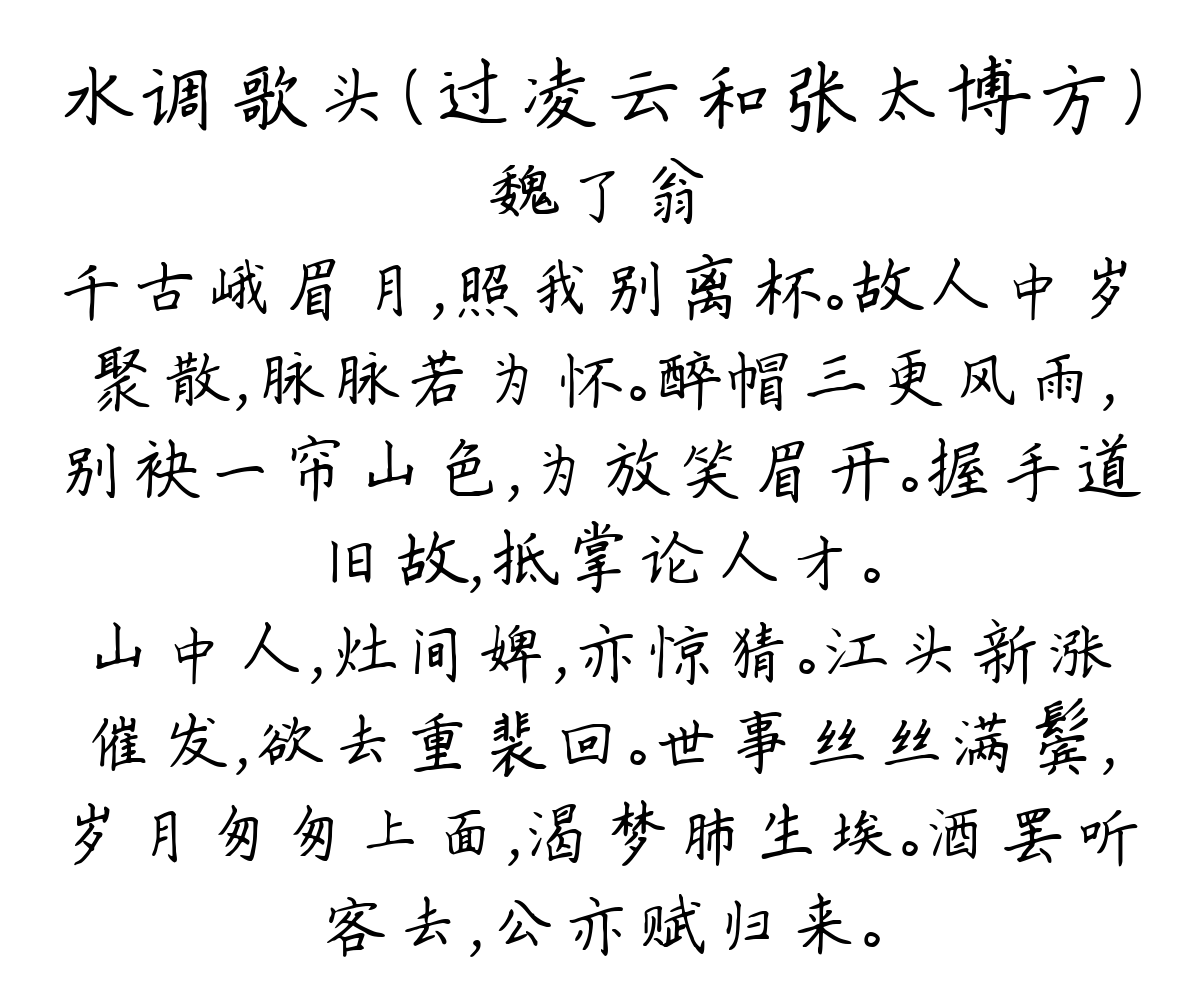 水调歌头(过凌云和张太博方)
魏了翁
千古峨眉月,照我别离杯。故人中岁
聚散,脉脉若为怀。醉帽三更风雨,
别袂一帘山色,为放笑眉开。握手道
旧故,抵掌论人才。
山中人,灶间婢,亦惊猜。江头新涨
催发,欲去重裴回。世事丝丝满鬓,
岁月匆匆上面,渴梦肺生埃。酒罢听
客去,公亦赋归来。